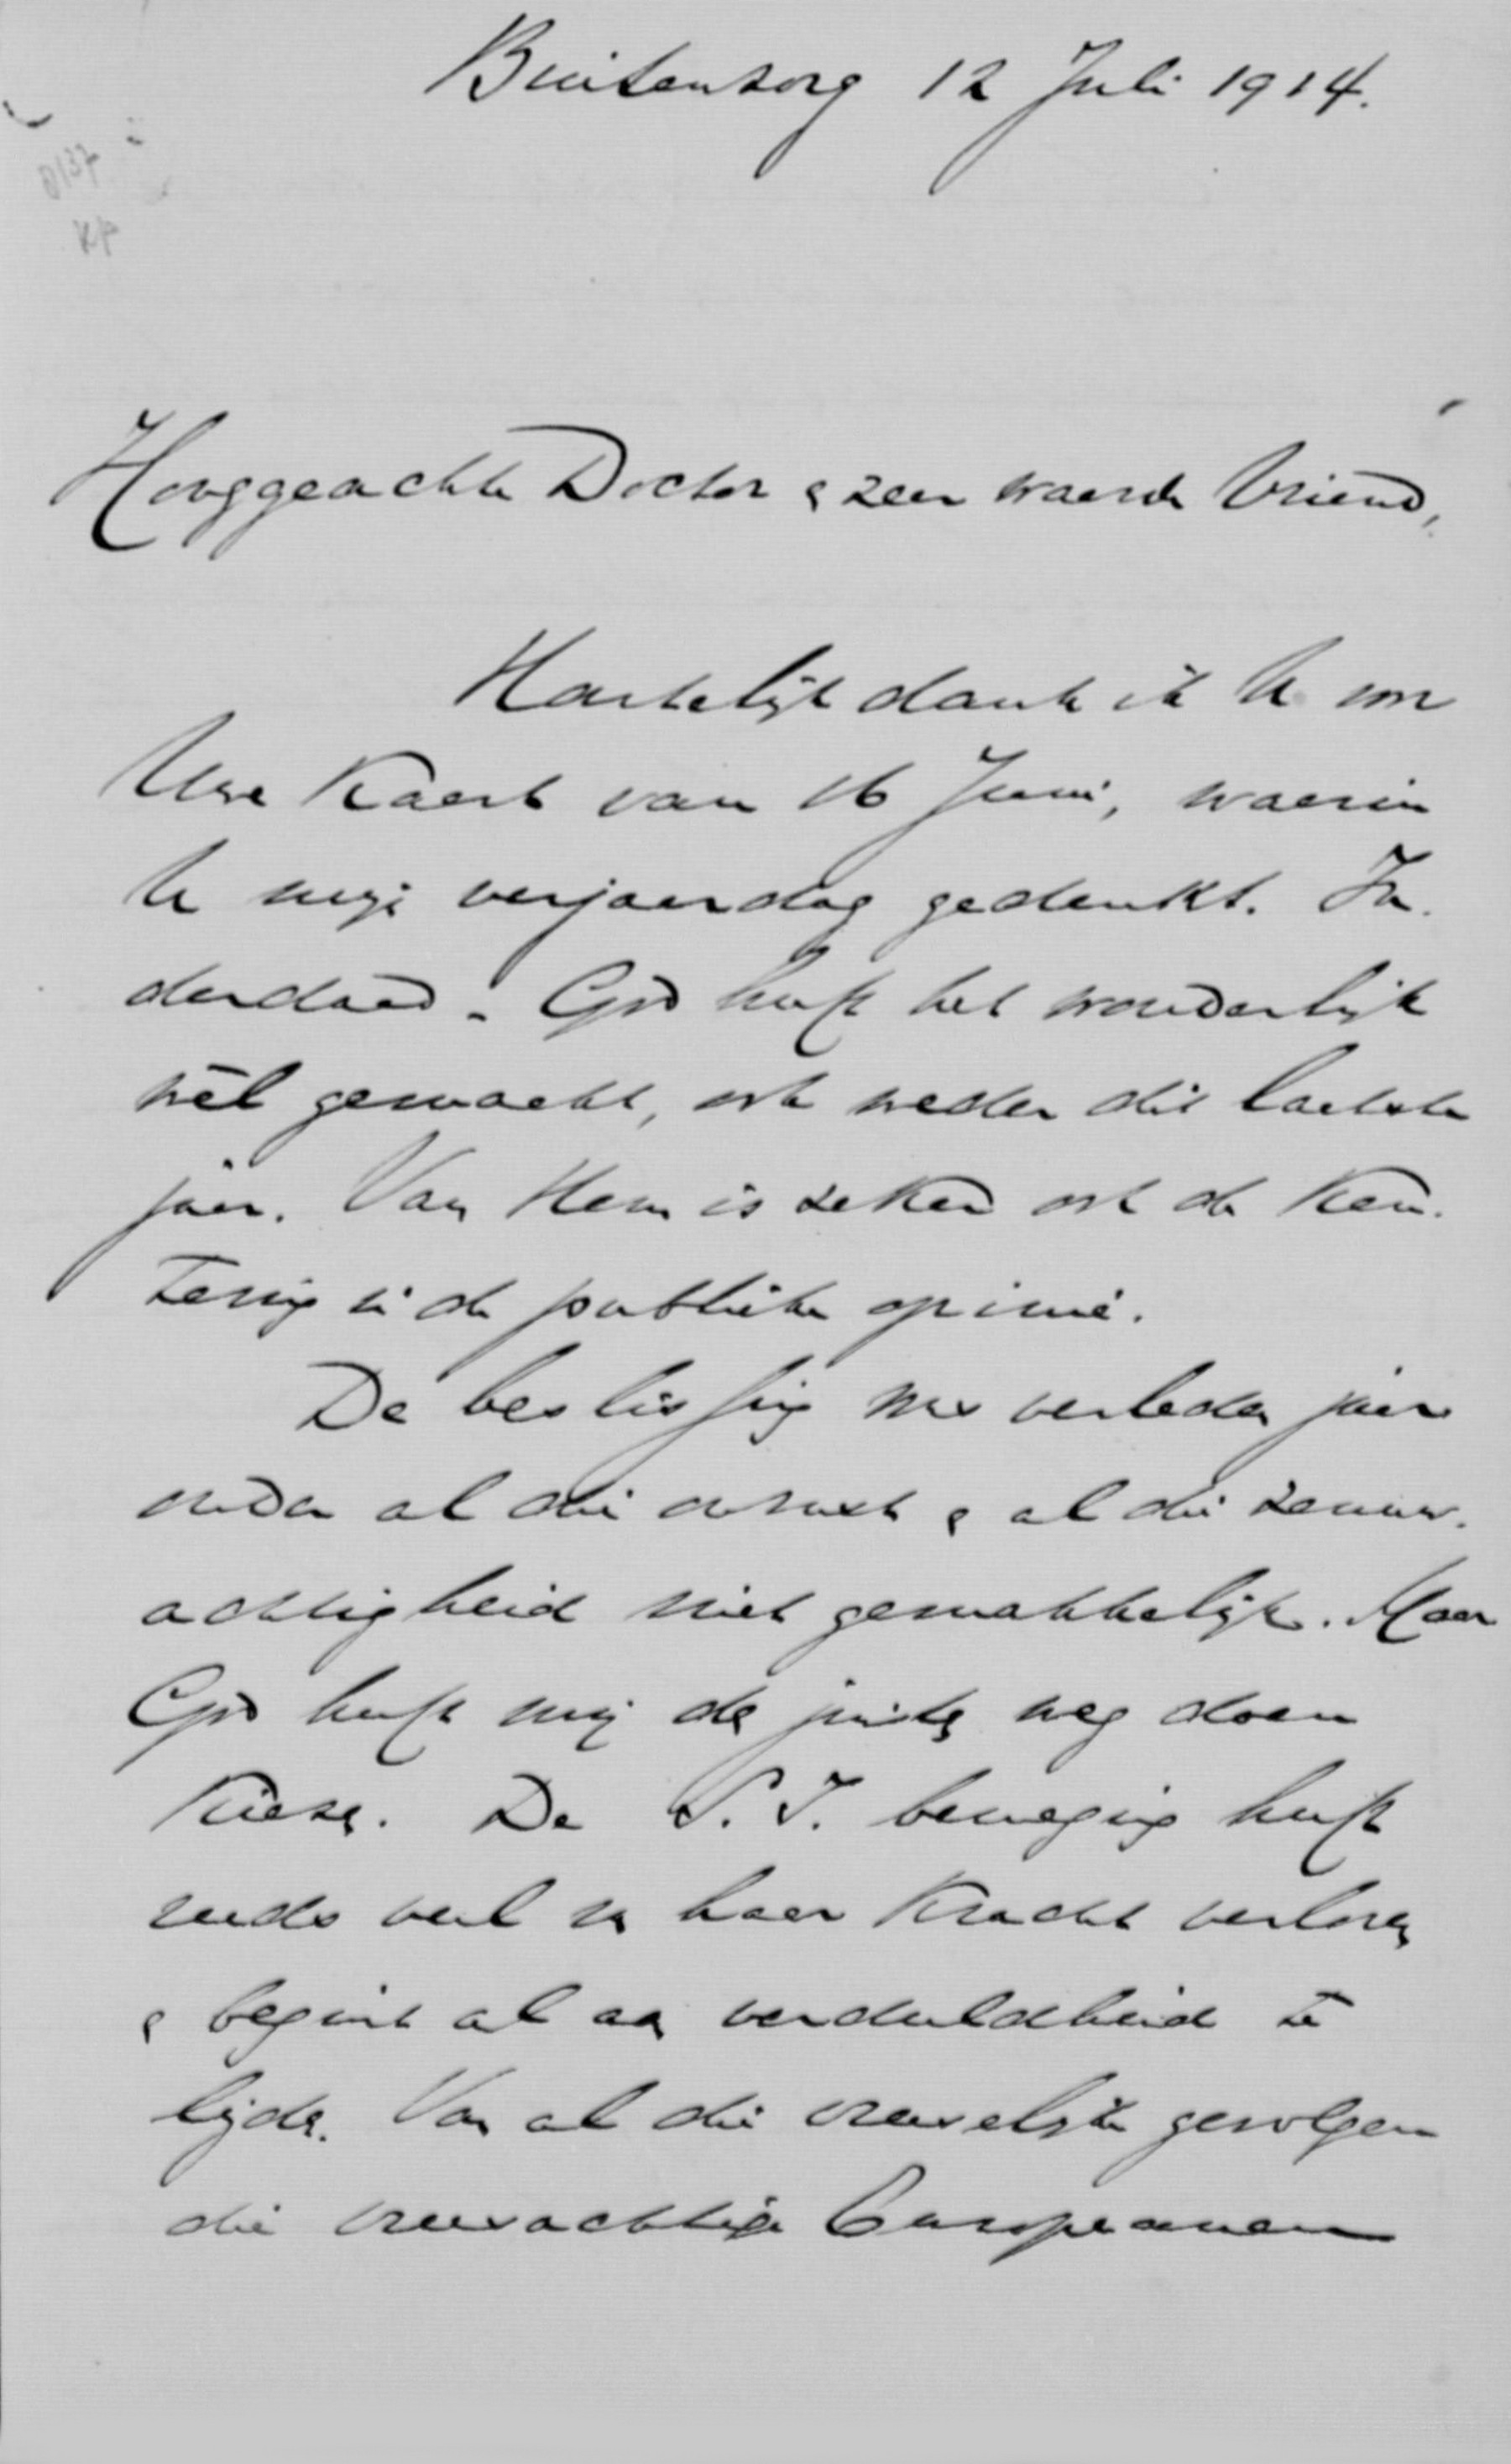 Buitenzorg 12 Juli 1914.
8137
KP
Hooggeachte Doctor & zeer waarde Vriend,
Hartelijk dank ik U voor
Uwe Kaart van 16 Juni, waarin
U mijn verjaardag gedenkt. In-
derdaad. God heeft het wonderlijk
wèl gemaakt, ook weder dit laatste
jaar. Van Hem is zeker ook de Ken-
tering in de publieke opinie.
De beslissing was verleden jaar
onder al die onrust & al die zenuw-
achtigheid niet gemakkelijk. Maar
God heeft mij de juiste weg doen
Kiezen. De S.I. beweging heeft
reeds veel van haar Kracht verloren
& begint al aan verdeeldheid te
lijden. Van al die vreeselijke gevolgen
die vreesachtige Europeanen